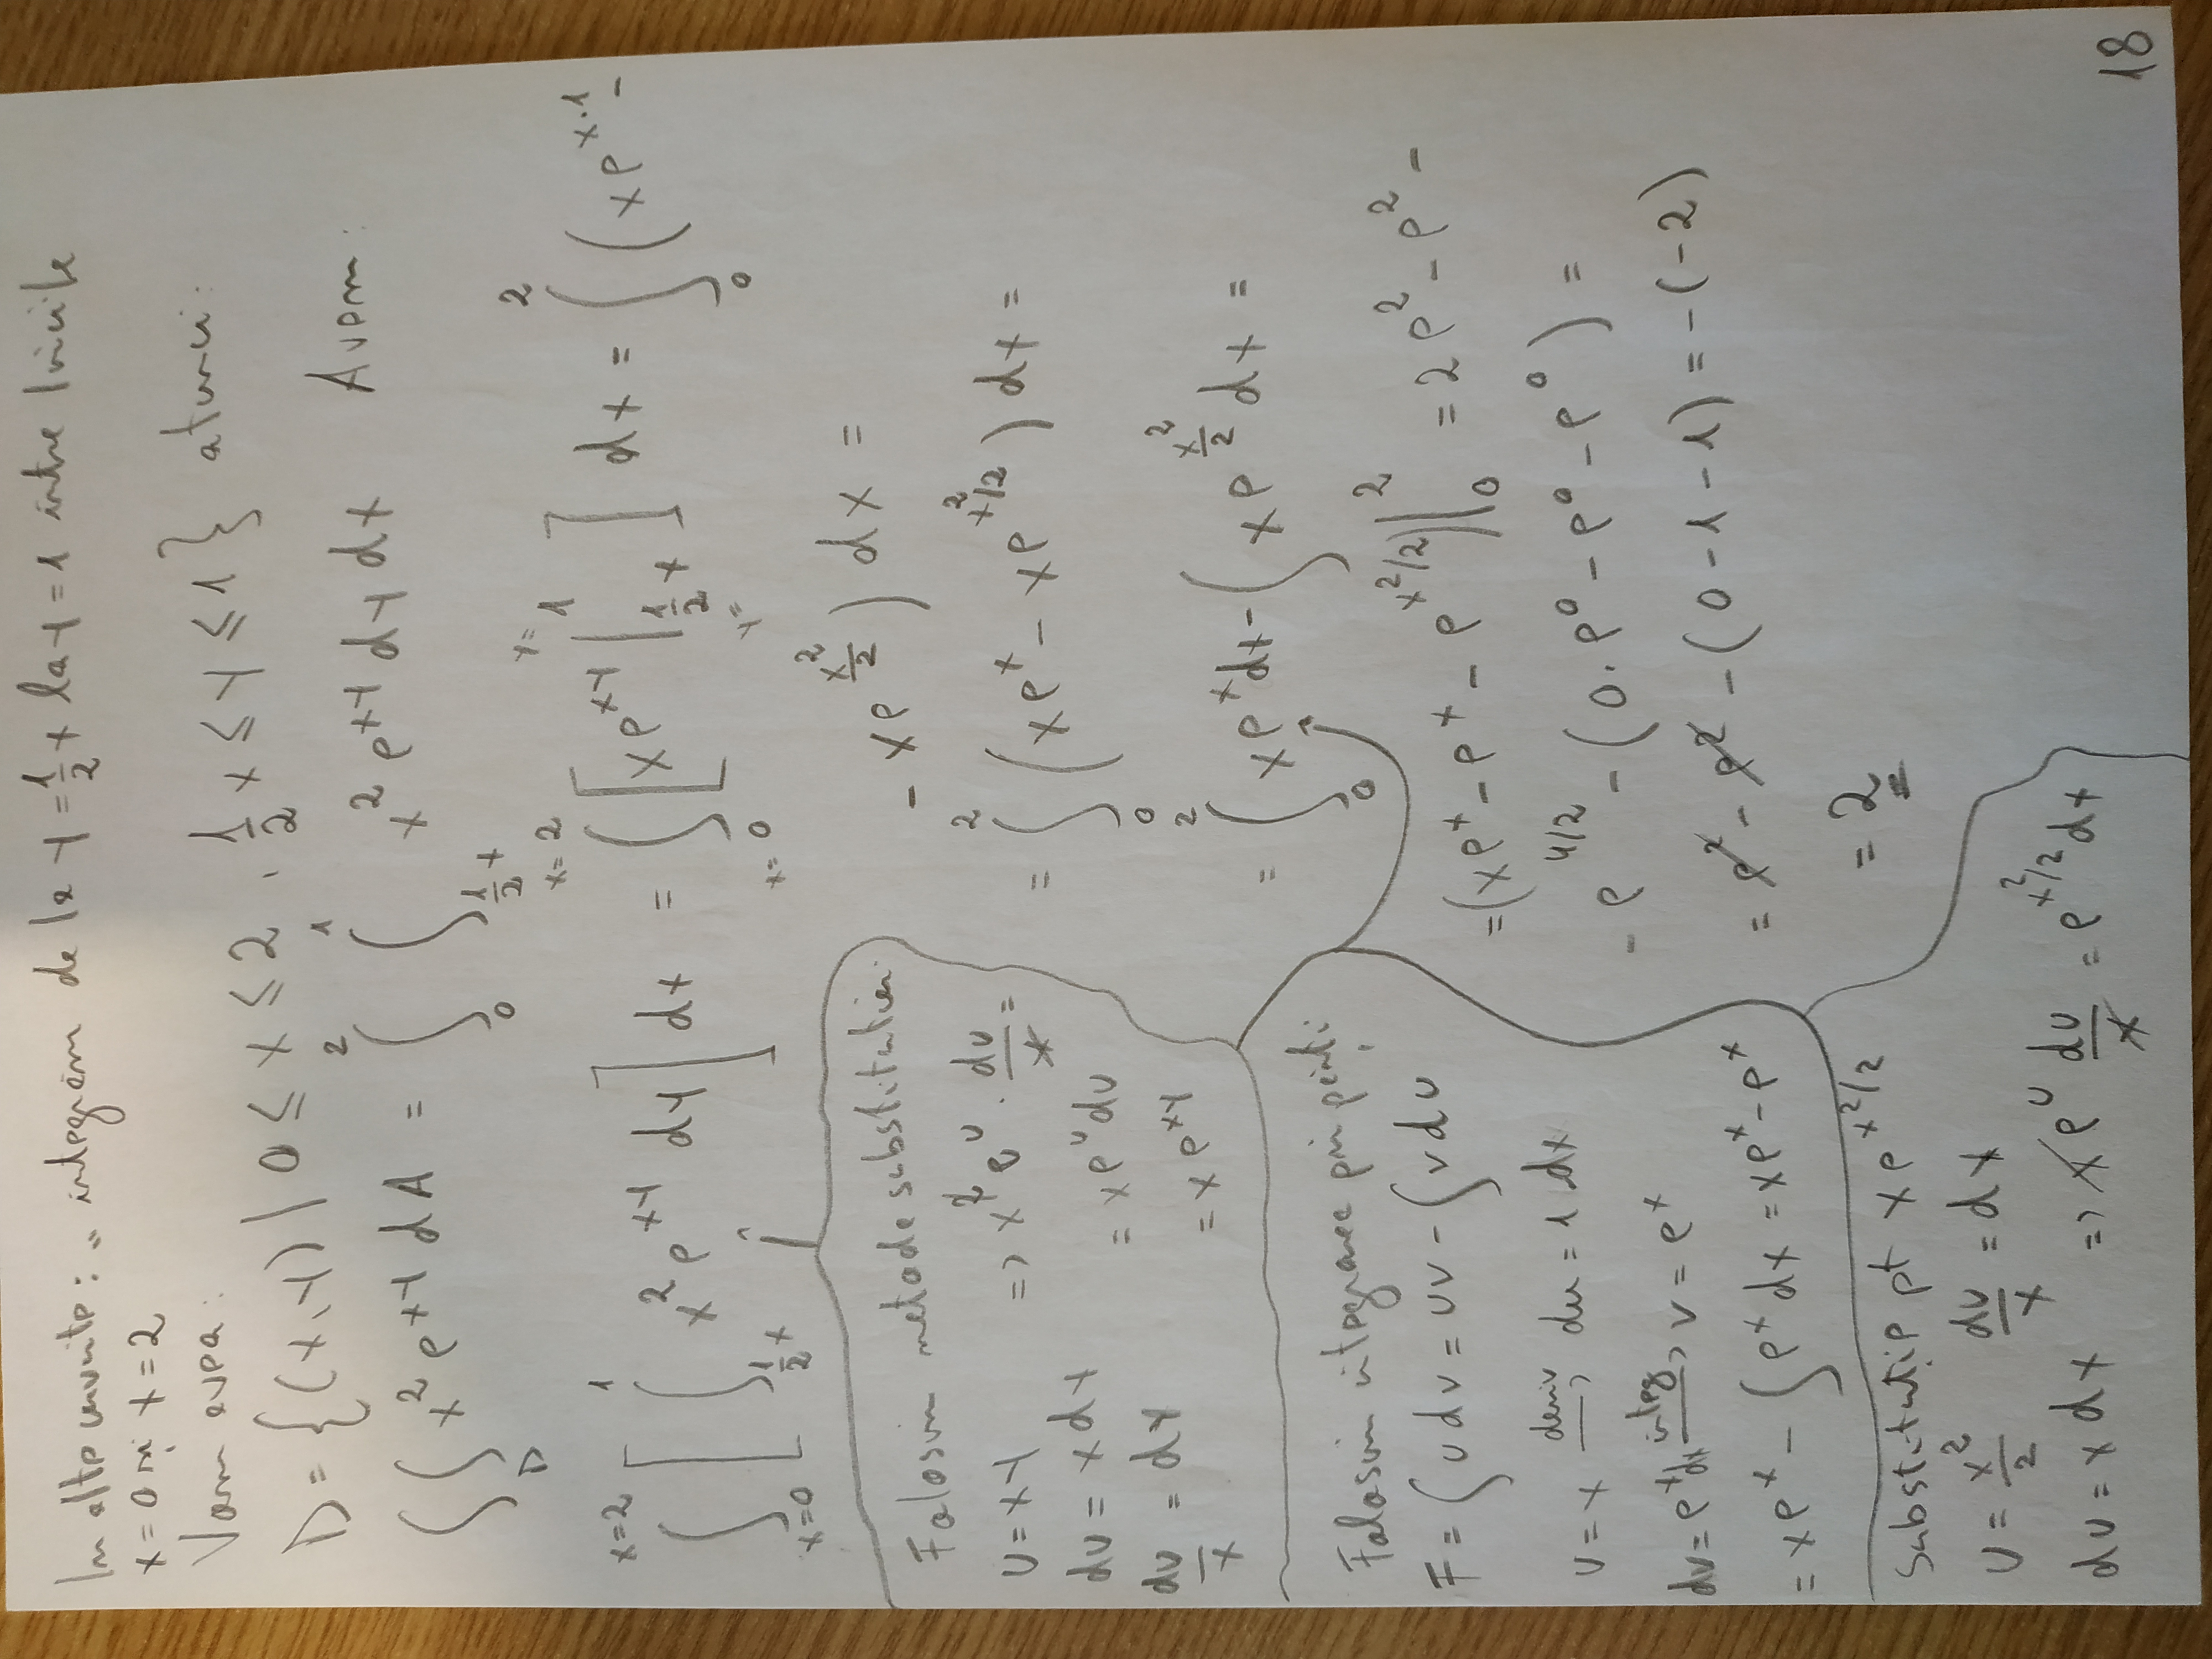 In alte cuvinte: „ integrăm de la y = 1/2 x la y = 1 intre liniile
x = 0 și x = 2
Vom avea:
D = {(x,y) | 0 ≤ x ≤ 2 , 1/2 x ≤ y ≤ 1} atunci:
∫∫_D x² e^{xy} dA = ∫_0^2 ∫_{1/2 x}^1 x² e^{xy} dy dx Avem:
∫_{x=0}^{x=2} [ ∫_{1/2 x}^1 x² e^{xy} dy ] dx = ∫_{x=0}^{x=2} [ x e^{xy} |_{y=1/2 x}^{y=1} ] dx = ∫_0^2 ( x e^{x·1} -
- x e^{x²/2} ) dx =
= ∫_0^2 ( x e^x - x e^{x²/2} ) dx =
= ∫_0^2 x e^x dx - ∫ x e^{x²/2} dx =
= (x e^x - e^x - e^{x²/2}) |_0^2 = 2e² - e² -
- e^{4/2} - (0·e⁰ - e⁰ - e⁰) =
= e² - e² - (0 - 1 - 1) = -(-2)
= 2
Folosim metoda substitutiei
u = xy => x² e^u · du/x =
du = x dy = x e^u du
du/x = dy = x e^{xy}
Folosim integrarea prin părți
F = ∫ u dv = uv - ∫ v du
u = x deriv → du = 1 dx
dv = e^x dx integ → v = e^x
= x e^x - ∫ e^x dx = x e^x - e^x
Substituție pt x e^{x²/2}
u = x²/2 du/x = dx
du = x dx => x e^u du/x = e^{x²/2} dx
18